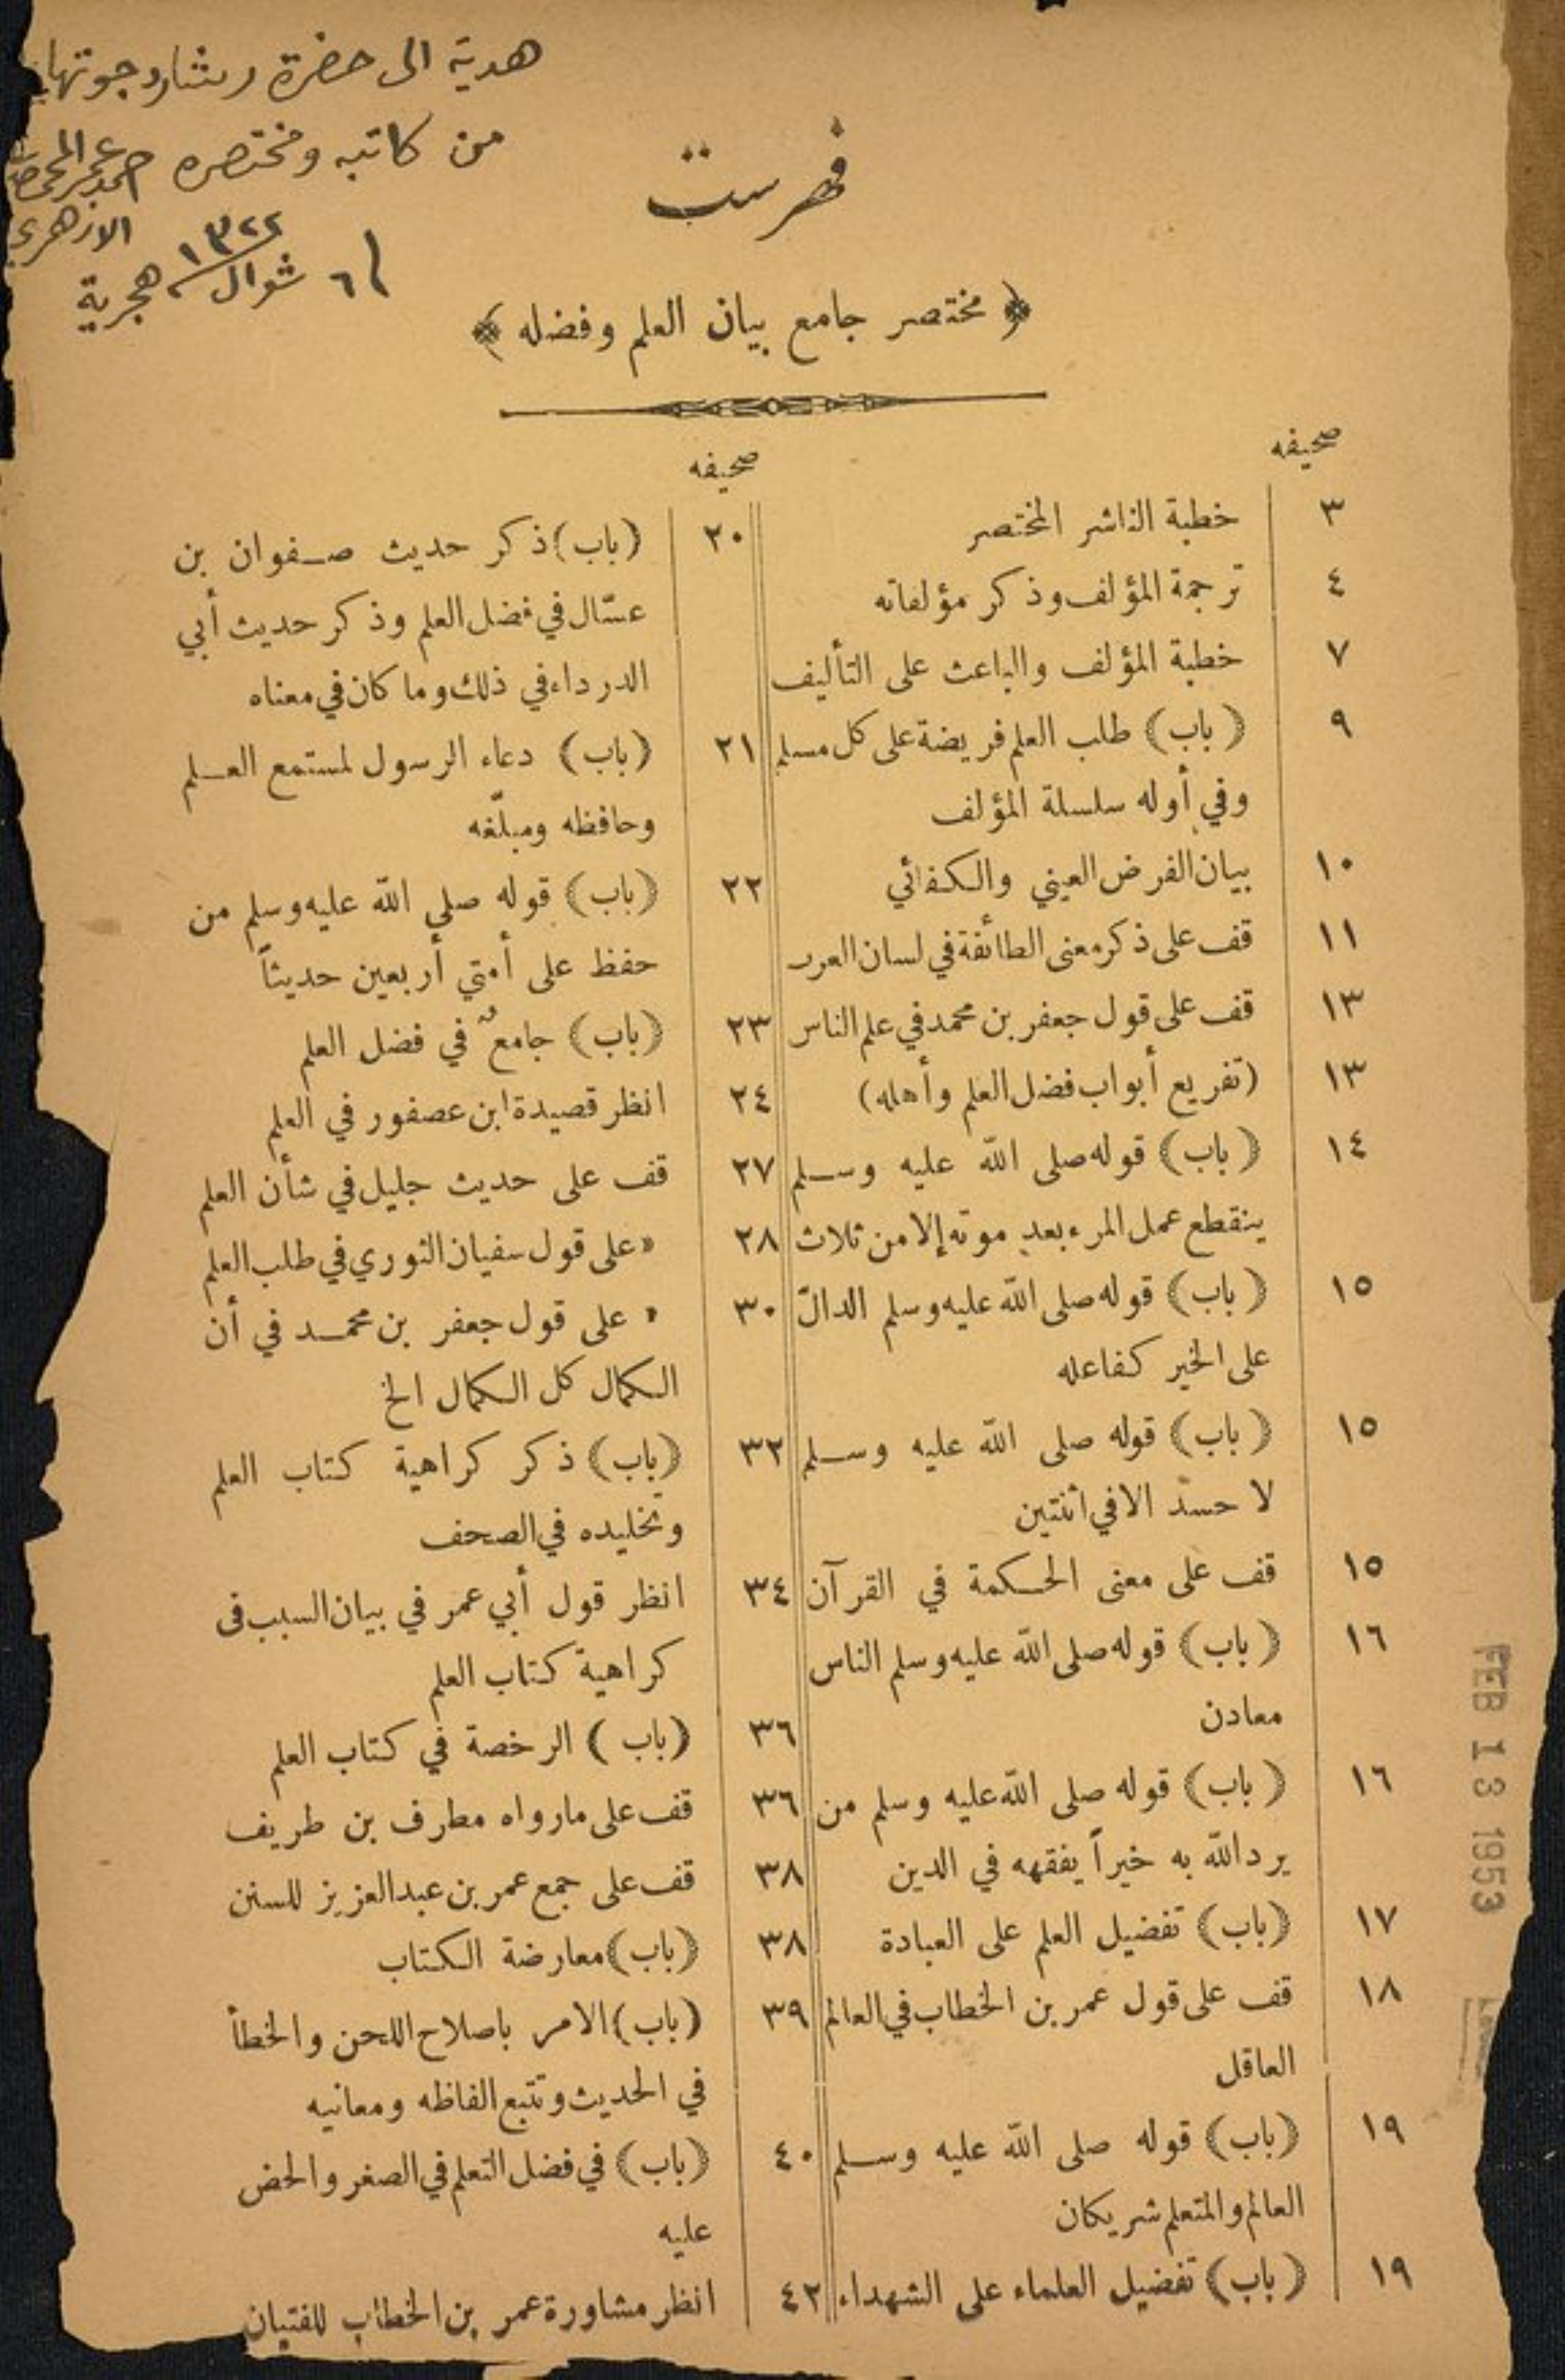 هدية الى حضرة رتشارد جوتهايل
من كاتبه ومختصره احمد عمر المحمصاني
الازهري
٦ شوال ١٣٢٢ هجرية
فهرست
﴿ مختصر جامع بيان العلم وفضله ﴾
صحيفه
٣ خطبة الناشر المختصر
٤ ترجمة المؤلف وذكر مؤلفاته
٧ خطبة المؤلف والباعث على التأليف
٩ (باب) طلب العلم فريضة على كل مسلم
وفي أوله سلسلة المؤلف
١٠ بيان الفرض العيني والكفائي
١١ قف على ذكر معنى الطائفة في لسان العرب
١٣ قف على قول جعفر بن محمد في علم الناس
١٣ (تفريع أبواب فضل العلم وأهله)
١٤ (باب) قوله صلى الله عليه وسلم
ينقطع عمل المرء بعد موته إلا من ثلاث
١٥ (باب) قوله صلى الله عليه وسلم الدالّ
على الخير كفاعله
١٥ (باب) قوله صلى الله عليه وسلم
لا حسد الا في اثنتين
١٥ قف على معنى الحكمة في القرآن
١٦ (باب) قوله صلى الله عليه وسلم الناس
معادن
١٦ (باب) قوله صلى الله عليه وسلم من
يرد الله به خيراً يفقهه في الدين
١٧ (باب) تفضيل العلم على العبادة
١٨ قف على قول عمر بن الخطاب في العالم
العاقل
١٩ (باب) قوله صلى الله عليه وسلم
العالم والمتعلم شريكان
١٩ (باب) تفضيل العلماء على الشهداء
صحيفه
٢٠ (باب) ذكر حديث صفوان بن
عسّال في فضل العلم وذكر حديث أبي
الدرداء في ذلك وما كان في معناه
٢١ (باب) دعاء الرسول لمستمع العلم
وحافظه ومبلّغه
٢٢ (باب) قوله صلى الله عليه وسلم من
حفظ على أمتي أربعين حديثاً
٢٣ (باب) جامعٌ في فضل العلم
٢٤ انظر قصيدة ابن عصفور في العلم
٢٧ قف على حديث جليل في شأن العلم
٢٨ « على قول سفيان الثوري في طلب العلم
٣٠ « على قول جعفر بن محمد في أن
الكمال كل الكمال الخ
٣٢ (باب) ذكر كراهية كتاب العلم
وتخليده في الصحف
٣٤ انظر قول أبي عمر في بيان السبب في
كراهية كتاب العلم
٣٦ (باب) الرخصة في كتاب العلم
٣٦ قف على مارواه مطرف بن طريف
٣٨ قف على جمع عمر بن عبد العزيز للسنن
٣٨ (باب) معارضة الكتاب
٣٩ (باب) الامر باصلاح اللحن والخطأ
في الحديث وتتبع الفاظه ومعانيه
٤٠ (باب) في فضل التعلم في الصغر والحض
عليه
٤٢ انظر مشاورة عمر بن الخطاب للفتيان
FEB 13 1953